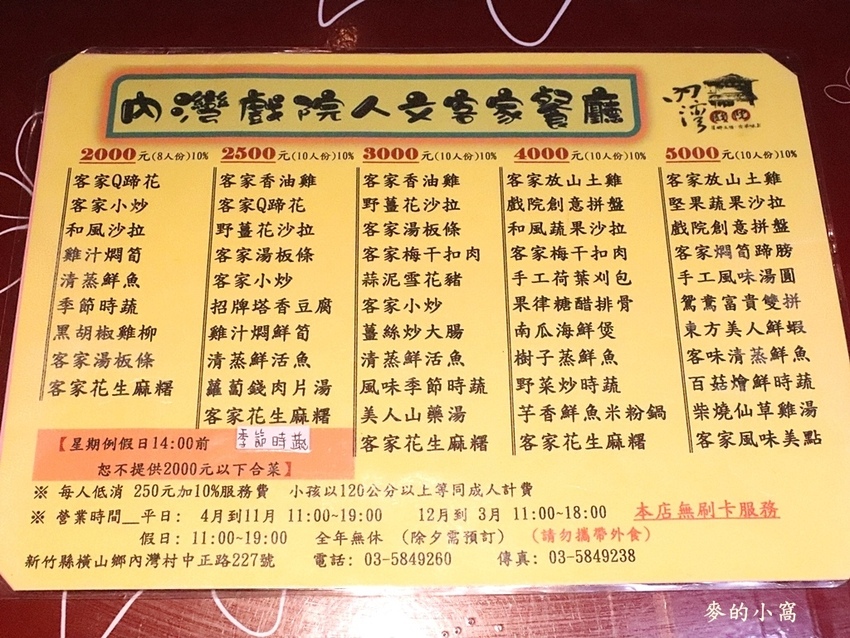 內灣戲院人文客家餐廳
內灣
戲院
2000元(8人份)10%
客家Q蹄花
客家小炒
和風沙拉
雞汁燜筍
清蒸鮮魚
季節時蔬
黑胡椒雞柳
客家湯板條
客家花生麻糬
2500元(10人份)10%
客家香油雞
客家Q蹄花
野薑花沙拉
客家湯板條
客家小炒
招牌塔香豆腐
雞汁燜鮮筍
清蒸鮮活魚
蘿蔔錢肉片湯
客家花生麻糬
季節時蔬
3000元(10人份)10%
客家香油雞
野薑花沙拉
客家湯板條
客家梅干扣肉
蒜泥雪花豬
客家小炒
薑絲炒大腸
清蒸鮮活魚
風味季節時蔬
美人山藥湯
客家花生麻糬
4000元(10人份)10%
客家放山土雞
戲院創意拼盤
和風蔬果沙拉
客家梅干扣肉
手工荷葉刈包
果律糖醋排骨
南瓜海鮮煲
樹子蒸鮮魚
野菜炒時蔬
芋香鮮魚米粉鍋
客家花生麻糬
5000元(10人份)10%
客家放山土雞
堅果蔬果沙拉
戲院創意拼盤
客家燜筍蹄膀
手工風味湯圓
鴛鴦富貴雙拼
東方美人鮮蝦
客味清蒸鮮魚
百菇燴鮮時蔬
柴燒仙草雞湯
客家風味美點
【星期例假日14:00前
恕不提供2000元以下合菜】
※ 每人低消 250元加10%服務費 小孩以120公分以上等同成人計費
※ 營業時間__平日: 4月到11月 11:00~19:00 12月到 3月 11:00~18:00 本店無刷卡服務
假日: 11:00~19:00 全年無休 (除夕需預訂) (請勿攜帶外食)
新竹縣橫山鄉內灣村中正路227號 電話: 03-5849260 傳真: 03-5849238
麥的小窩